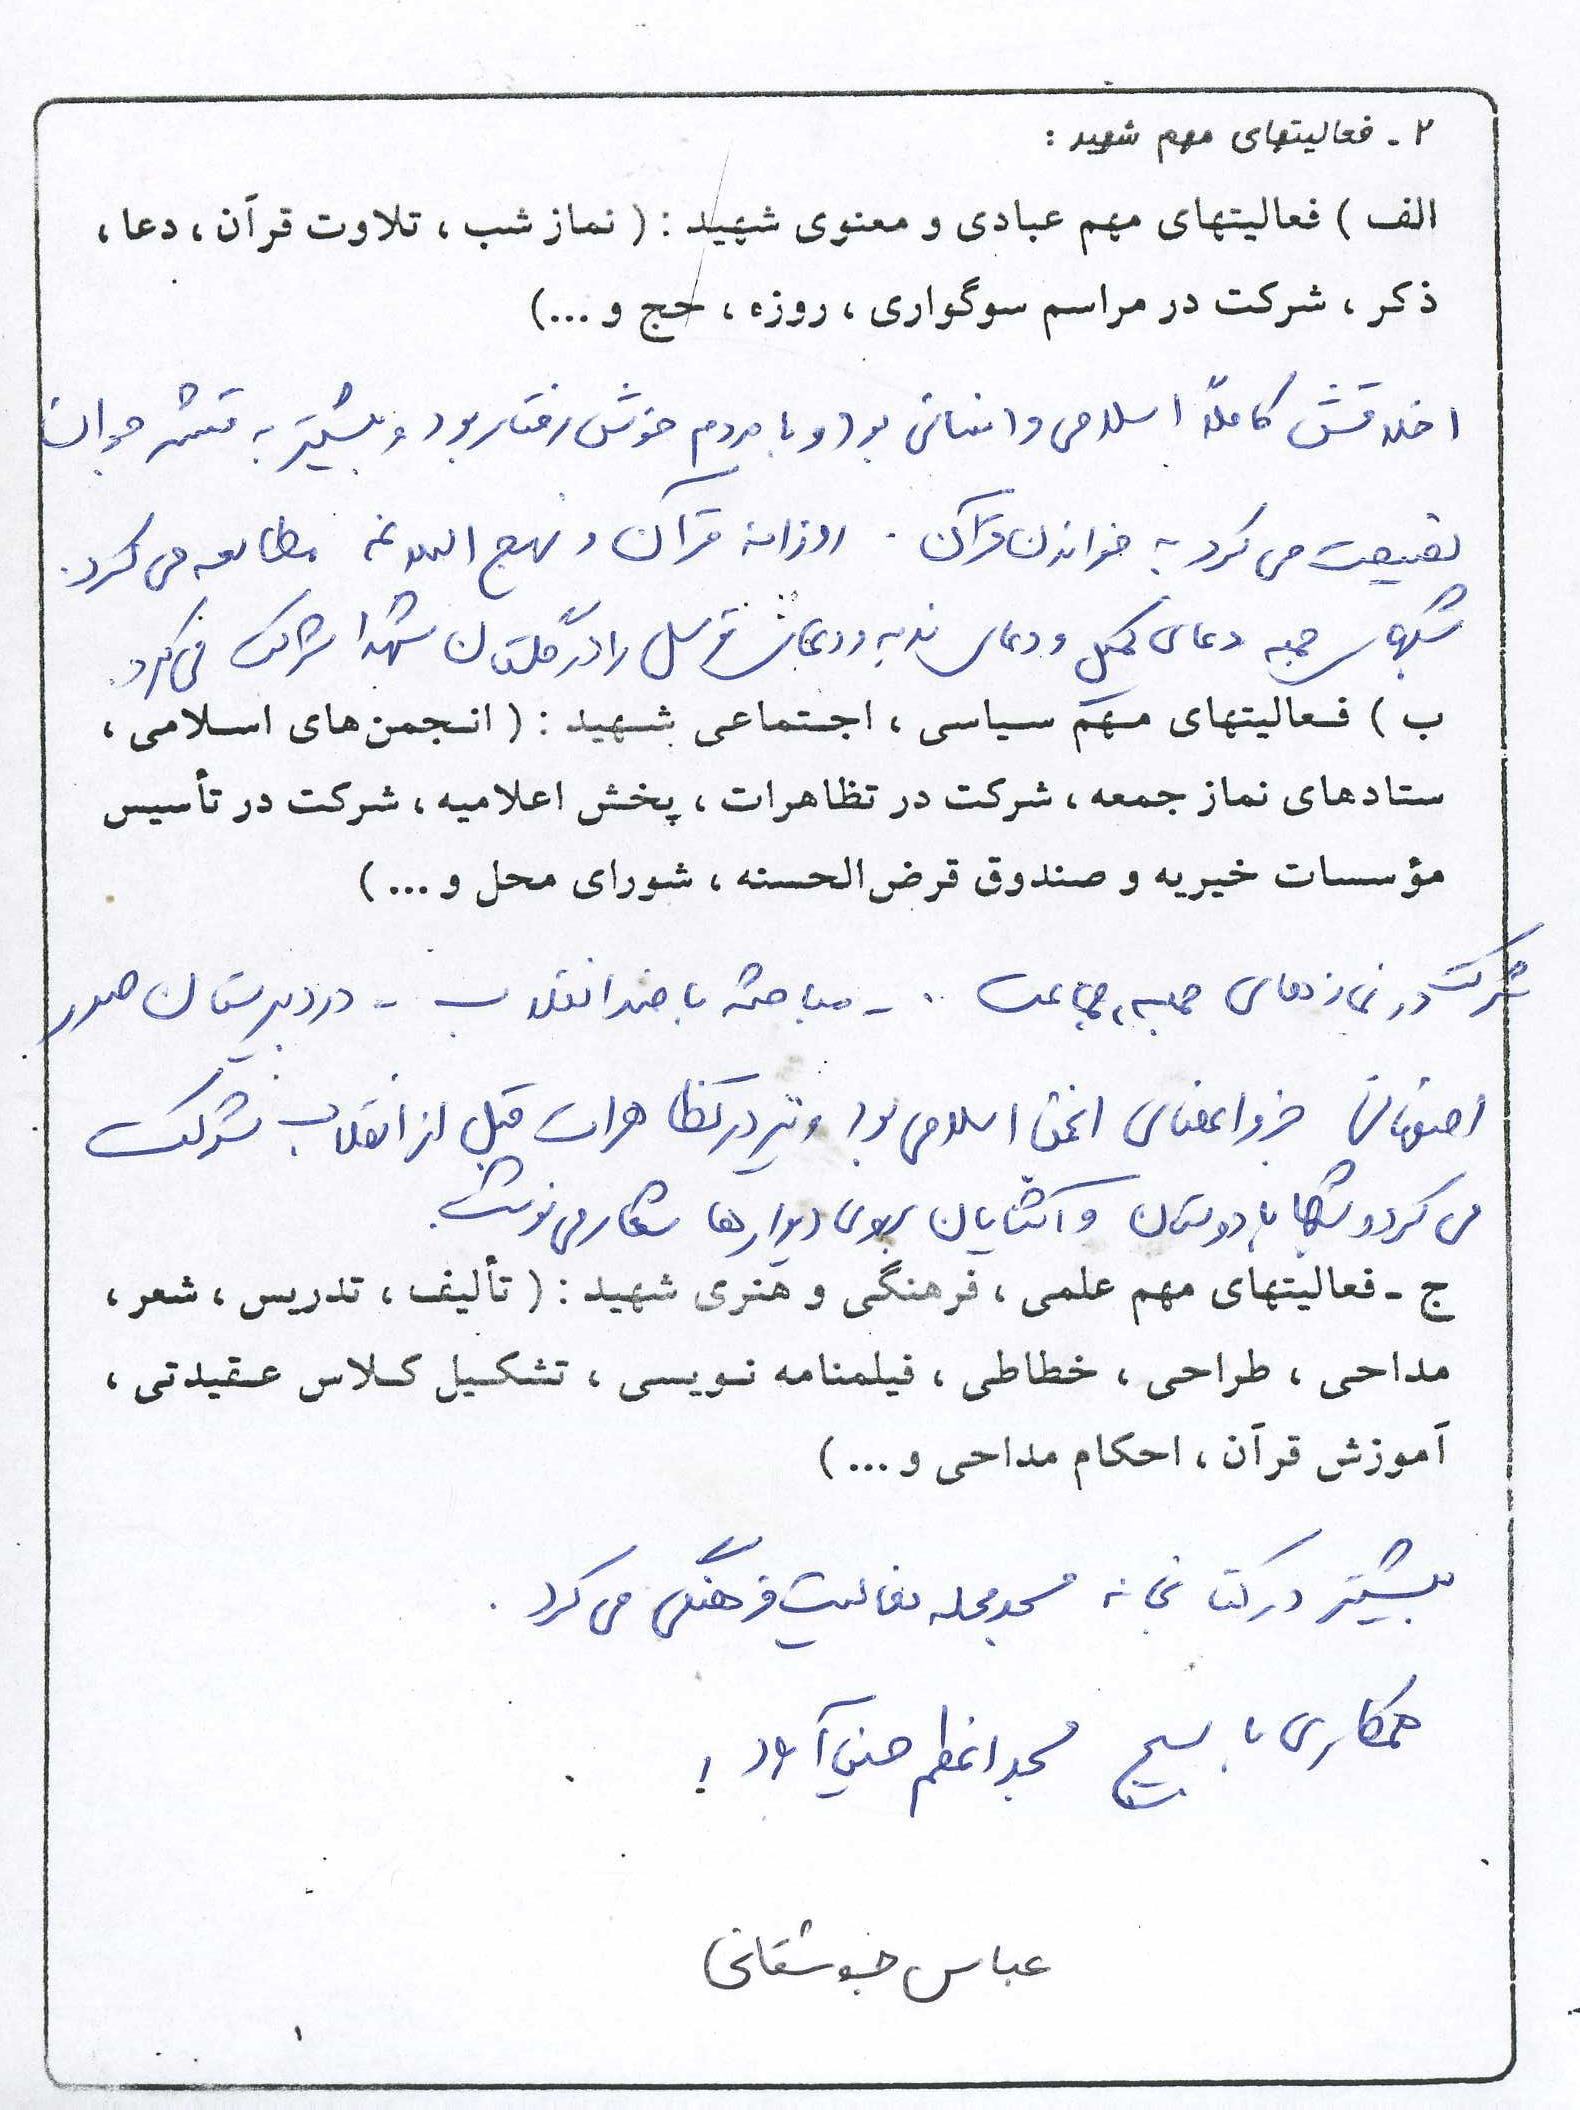 ۲ ـ فعالیتهای مهم شهید :
الف ) فعالیتهای مهم عبادی و معنوی شهید : ( نماز شب ، تلاوت قرآن ، دعا ،
ذکر ، شرکت در مراسم سوگواری ، روزه ، حج و ...)
اخلاقش کاملاً اسلامی و انسانی بود و با مردم خوش رفتار بود و بیشتر به قشر جوان
نصیحت می کرد به خواندن قرآن . روزانه قرآن و نهج البلاغه مطالعه می کرد .
شبهای جمعه دعای کمیل و دعای ندبه و دعای توسل را در گلستان شهدا شرکت می کرد .
ب ) فعالیتهای مهم سیاسی ، اجتماعی شهید : ( انجمن های اسلامی ،
ستادهای نماز جمعه ، شرکت در تظاهرات ، پخش اعلامیه ، شرکت در تأسیس
مؤسسات خیریه و صندوق قرض الحسنه ، شورای محل و ... )
شرکت در نمازهای جمعه ، جماعت . - مباحثه با ضد انقلاب - در دبیرستان
اصفهان جزو اعضای انجمن اسلامی بود و نیز در تظاهرات قبل از انقلاب شرکت
می کرد و شبها با دوستان و آشنایان بروی دیوارها شعار می نوشت .
ج ـ فعالیتهای مهم علمی ، فرهنگی و هنری شهید : ( تألیف ، تدریس ، شعر ،
مداحی ، طراحی ، خطاطی ، فیلمنامه نویسی ، تشکیل کلاس عقیدتی ،
آموزش قرآن ، احکام مداحی و ... )
بیشتر در کتابخانه مسجد محله فعالیت فرهنگی می کرد .
همکاری با بسیج مسجد اعظم حسین آباد !
عباس خوشقانی